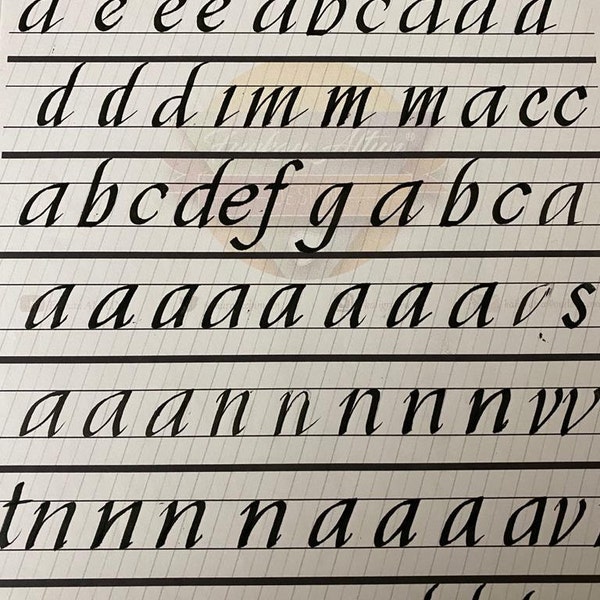 a e e e a b c a a a
d d d i m m m a c c
a b c d e f g a b c a
a a a a a a a a a o s
a a a n n n n n v v
t n n n n a a a a v